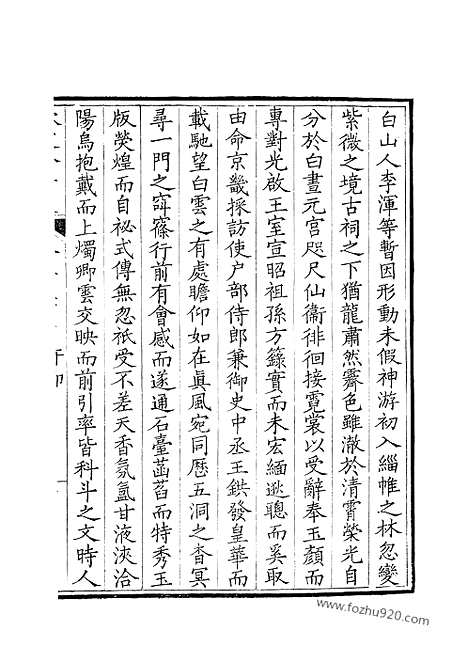 白山人李渾等暫因形動未假神游初入緇帷之林忽變
紫微之境古祠之下猶龍肅然霽色雖澈於清霄榮光自
分於白晝元宫咫尺仙衞徘徊接霓裳以受辭奉玉顔而
專對光啟王室宣昭祖孫方籙實而未宏緬逖聰而奚取
由命京畿採訪使户部侍郎兼御史中丞王鉷發皇華而
載馳望白雲之有處瞻仰如在真風宛同歴五洞之杳冥
尋一門之窙篠行前有會感而遂通石臺菡萏而特秀玉
版熒煌而自祕式傳無忽祇受不差天香氛氲甘液浹洽
陽烏抱戴而上燭卿雲交映而前引率皆科斗之文時人
www.fozhu920.com